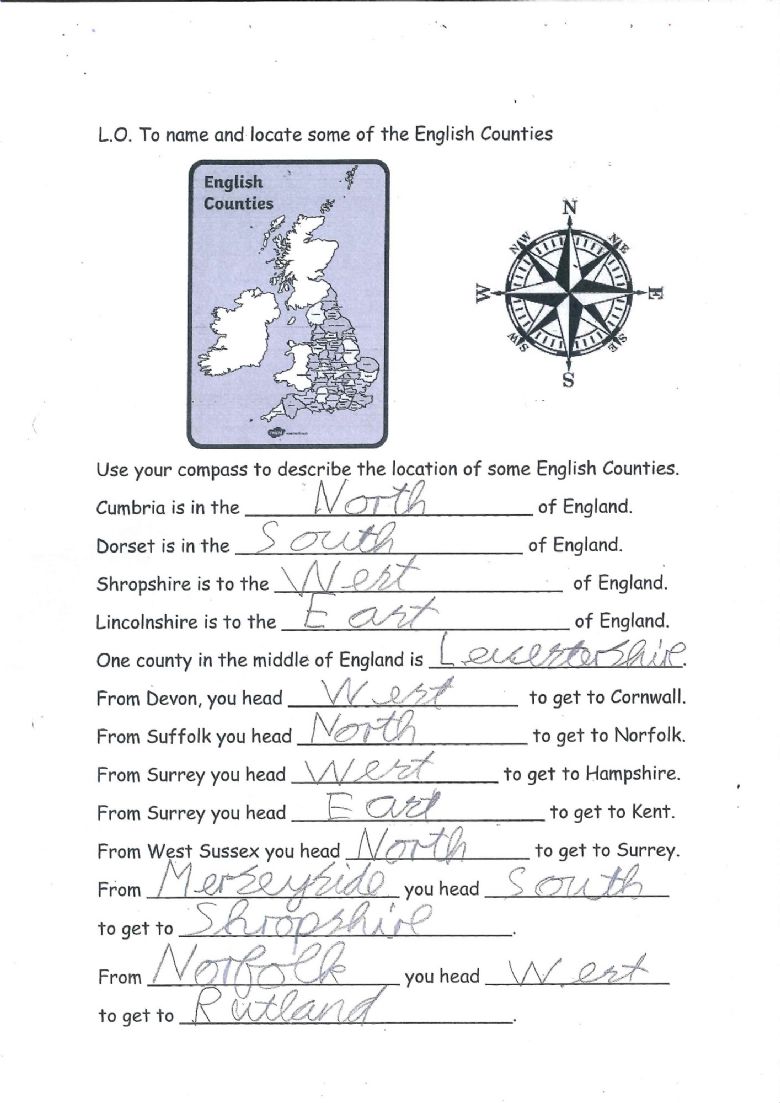 L.O. To name and locate some of the English Counties
English
Counties
N
NW NE
W E
SW SE
S
Use your compass to describe the location of some English Counties.
Cumbria is in the North of England.
Dorset is in the South of England.
Shropshire is to the West of England.
Lincolnshire is to the East of England.
One county in the middle of England is Leicestershire.
From Devon, you head West to get to Cornwall.
From Suffolk you head North to get to Norfolk.
From Surrey you head West to get to Hampshire.
From Surrey you head East to get to Kent.
From West Sussex you head North to get to Surrey.
From Merseyside you head South
to get to Shropshire.
From Norfolk you head West
to get to Rutland.